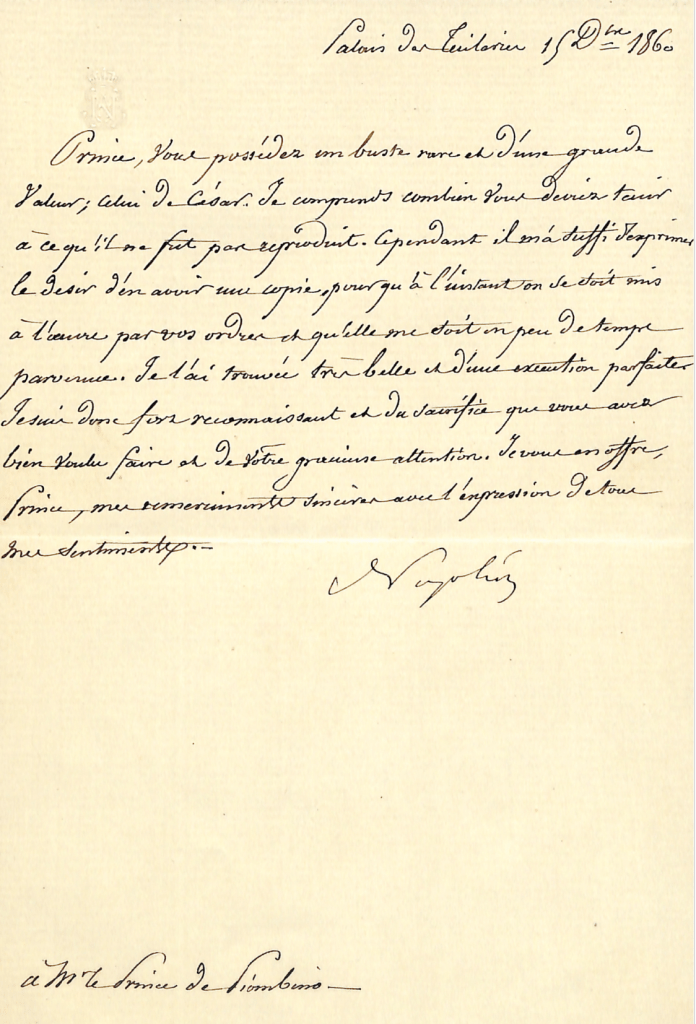 Palais des Tuileries 15 Dbre 1860
Prince, Vous possédez un buste rare et d'une grande
valeur; celui de César. Je comprends combien vous deviez tenir
à ce qu'il ne fut pas reproduit. Cependant il m'a suffi d'exprimer
le desir d'en avoir une copie, pour qu'à l'instant on se soit mis
à l'œuvre par vos ordres et qu'elle me soit en peu de temps
parvenue. Je l'ai trouvée très belle et d'une execution parfaite.
Je suis donc fort reconnaissant et du sacrifice que vous avez
bien voulu faire et de votre gracieuse attention. Je vous en offre,
Prince, mes remerciments sincères avec l'expression de tous
mes sentiments.
Napoléon
à Mr le Prince de Piombino